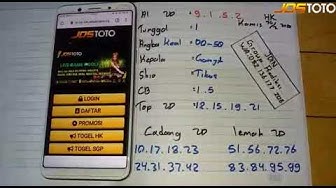 JOSTOTO
JOSTOTO
LOGIN
DAFTAR
PROMOSI
TOGEL HK
TOGEL SGP
AI 2D : 9.1.5.2
HK
Kamis
Tunggal : 1
Angka Kecil : 00-50
Kepala : Ganjil
Shio : Tikus
CB : 1.5
Top 2D : 12.15.19.21
Cadang 2D
10.17.18.23
24.31.37.42
lemah 2D
51.56.72.76
83.84.95.99